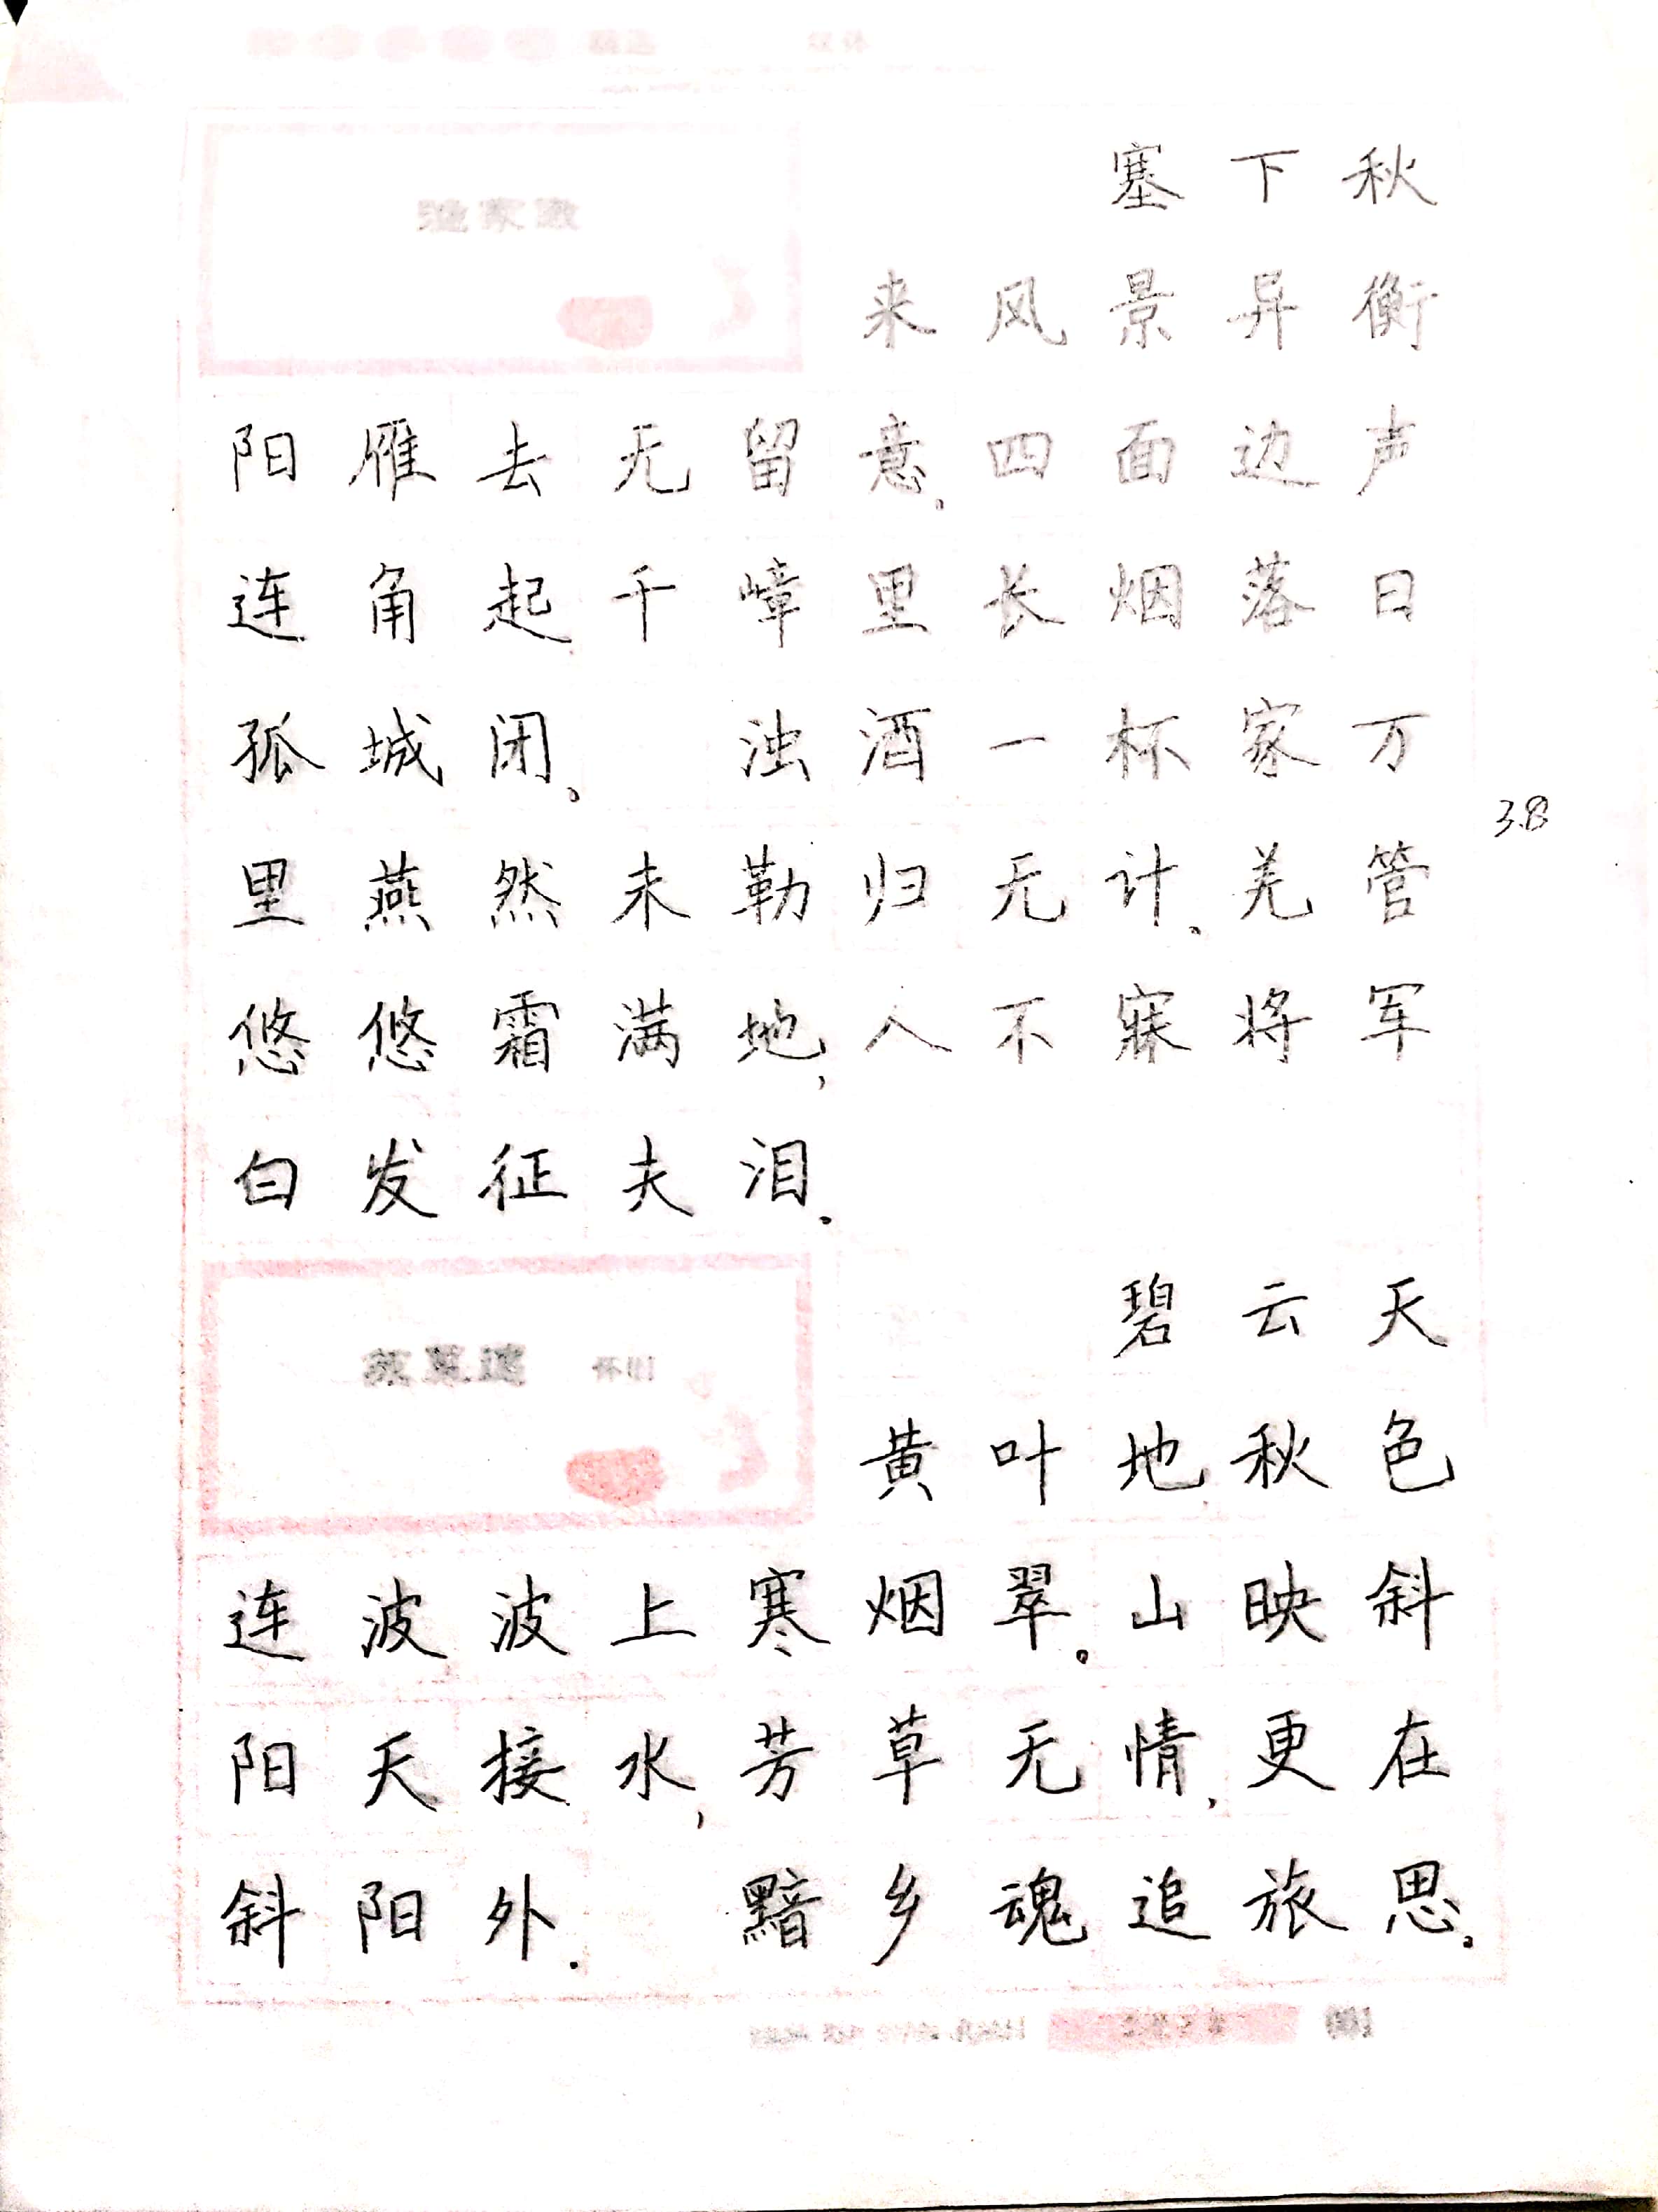 渔家傲
塞下秋
来风景异衡
阳雁去无留意。四面边声
连角起千嶂里长烟落日
孤城闭。浊酒一杯家万
3.8
里燕然未勒归无计。羌管
悠悠霜满地,人不寐将军
白发征夫泪。
苏幕遮 怀旧
碧云天
黄叶地秋色
连波波上寒烟翠。山映斜
阳天接水,芳草无情,更在
斜阳外.黯乡魂追旅思。